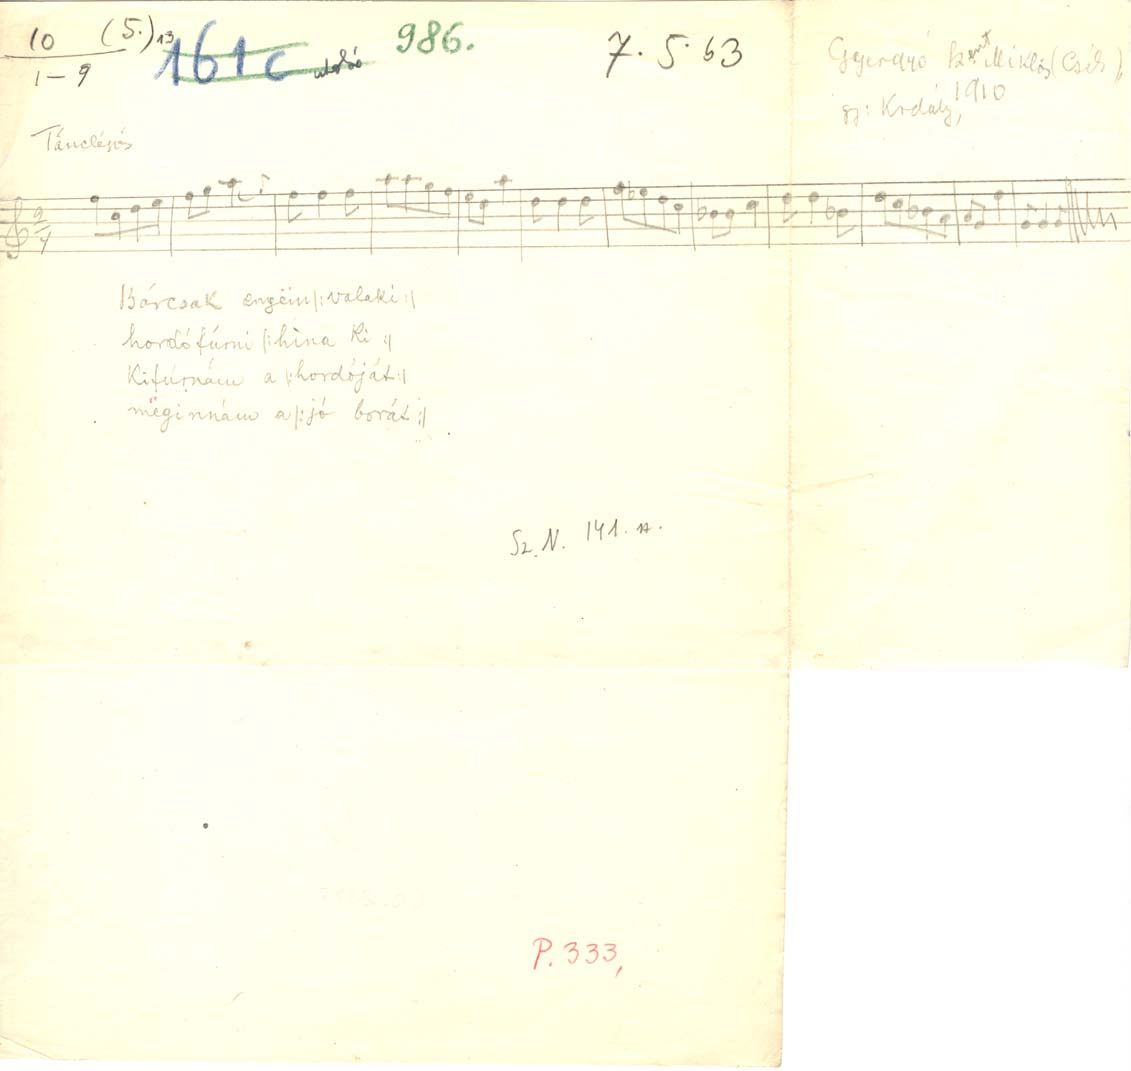 10 (5.)13
1-9
161c utolsó
986.
7. 5. 63
Gyergyó Szent Miklós (Csík),
gy: Kodály, 1910
Tánclépés
2/4
Bárcsak engëm |: valaki :|
hordófúrni |: hína ki :|
Kifúrnám a |: hordóját :|
mëginnám a |: jó borát :|
Sz. N. 141.
P. 333,